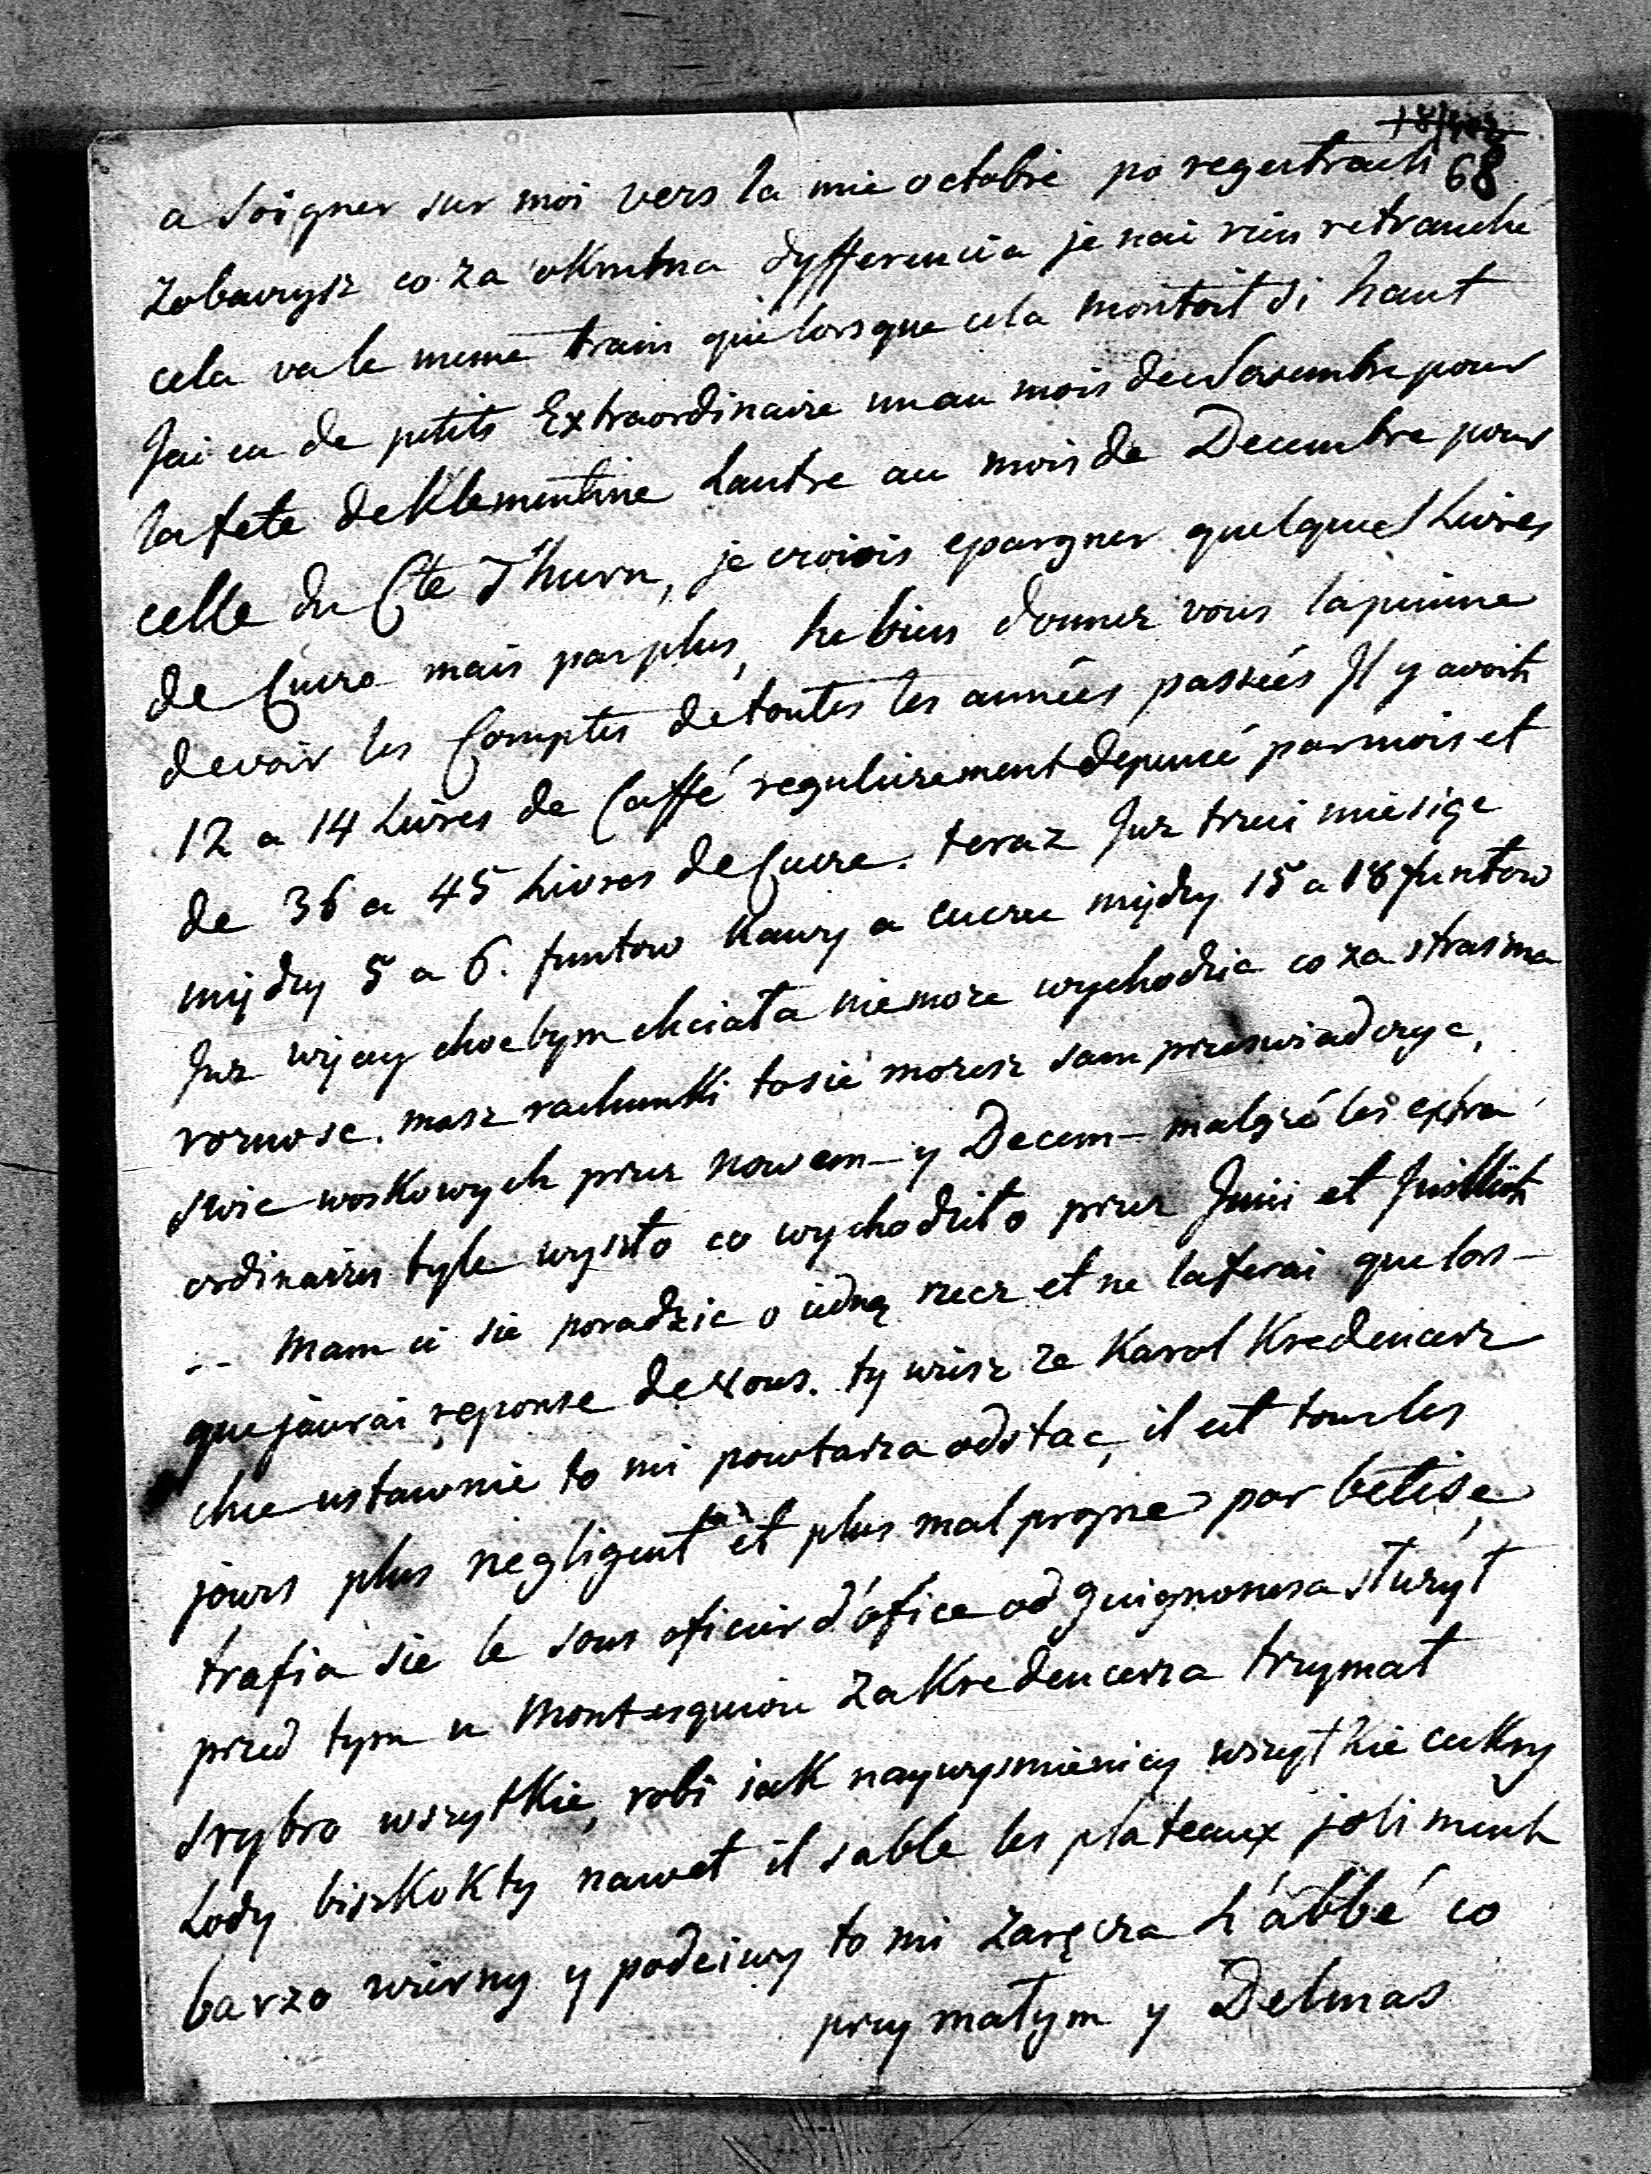 68
a soigner sur moi vers la mie octobre po regestrach
zobaczysz co za okrutna dyfferencia je nai rien retranché
cela va le meme train que lorsque cela montoit si haut
Jai eu de petits Extraordinaire un au mois de Novembre pour
la fete de Klementine Lautre au mois de Decembre pour
celle du Cte Thurn, je croiois epargner quelques Livres
de Cucre mais par plus, he bien donnez vous la peinne
de voir les Comptes de toutes les années passées Il y avoit
12 a 14 Livres de Caffé regulierement depencé par mois et
de 36 a 45 Livres de Cucre. teraz Juz trzei miesiąe
między 5 a 6. funtow Kawy a cucru między 15 a 18 funtow
Juz więcy choebym chciała niemoze wychodzic co za strasma
roznosc. masz rachunki to sie mozesz sam przeswiadczyc,
swic woskowych przez nowem- y Decem- malgré les extra
ordinaires tyle wyszło co wychodziło przez Juin et Juillet
-- Mam ci sie poradzic o iedną rzecz et ne laferai que lors-
que jaurai reponse de vous. ty wiesz ze Karol Kredencerz
chce ustawnie to mi powtarza odstac, il est tous les
jours plus negligent et plus mal propre par betise,
trafia sie le sous oficier d'ofice od Guignonesa służył
przed tym u Montesquiou za Kredencerza trzymał
srybro wszytkie, robi iak naywysmieniciy wszytkie cukry
Lody biszkokty nawet il sable les plateaux joliment
barzo wierny y poczciwy to mi zaręcza L'abbé co
przy małym y Delmas